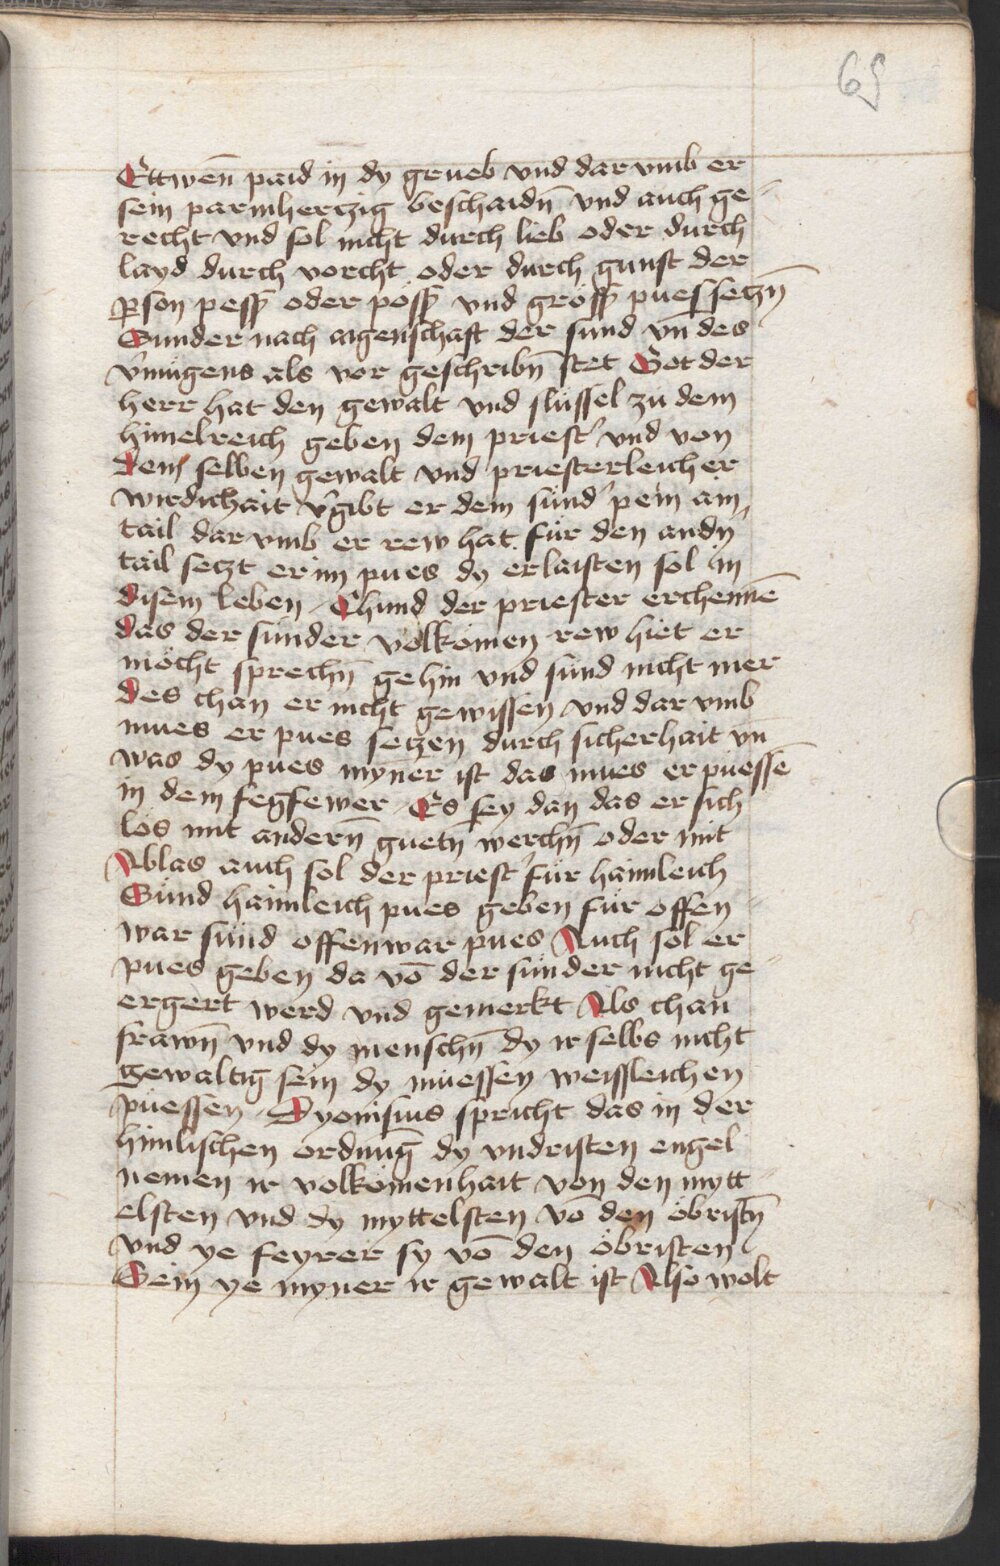 65
Ettwen̄ paid in dy grueb vnd dar vmb er
sein parmhertzig beschaidn̄ vnd auch ge-
recht vnd sol nicht durch lieb oder durch
layd durch vorcht oder durch gunst der
ꝑson pesß oder pösß vnd grösß pues setzn̄
Sunder nach aigenschaft der sund vn̄ des
v'mügens als vor geschribn̄ stet Got der
herr hat den gewalt vnd slüssel zu dem
himelreich geben dem priest' vnd von
dem selben gewalt vnd priesterleicher
wirdichait v'gibt er dem sünd' pein ain
tail dar vmb er rew hat für den andn̄
tail seczt er im pues dy er laisten sol in
disem leben Chund der priester erchenn̄e
das der sünder volkomen rew hiet er
möcht sprechn̄ ge hin vnd sünd nicht mer
des chan er nicht gewissen vnd dar vmb
mues er pues setzen durch sicherhait vn̄
was dy pues myner ist das mues er puessē
in dem fegfewer Es sey dan das er sich
los mit andern̄ guetn̄ werchn̄ oder mit
Ablas auch sol der priest' für haimleich
Sünd haimleich pues geben für offen
war sünd offenwar pues Auch sol er
pues geben da vō der sünder nicht ge-
ergert werd vnd gemerkt Als chan
frawn̄ vnd dy menschn̄ dy ir selbs nicht
gewaltig sein dy müessen weissleichen
püessen Dyonisius spricht das in der
himlischen ordnūg dy vndristen engel
nemen ir volkomenhait von den mytt
elsten vnd dy myttelsten vō den öbristn̄
vnd ye feyrer sy vō den öbristen
Sein ye myner ir gewalt ist Also wolt